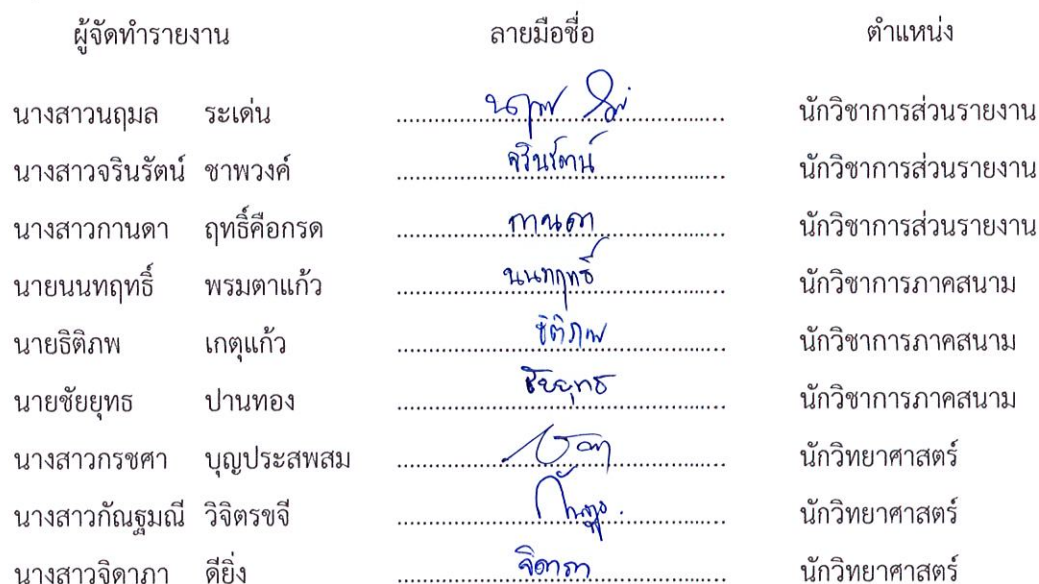 ผู้จัดทำรายงาน ลายมือชื่อ ตำแหน่ง
นางสาวนฤมล ระเด่น นฤมล นักวิชาการส่วนรายงาน
นางสาวจรินรัตน์ ชาพวงค์ จรินรัตน์ นักวิชาการส่วนรายงาน
นางสาวกานดา ฤทธิ์คือกรด กานดา นักวิชาการส่วนรายงาน
นายนนทฤทธิ์ พรมตาแก้ว นนทฤทธิ์ นักวิชาการภาคสนาม
นายธิติภพ เกตุแก้ว ธิติภพ นักวิชาการภาคสนาม
นายชัยยุทธ ปานทอง ชัยยุทธ นักวิชาการภาคสนาม
นางสาวกรชศา บุญประสพสม นักวิทยาศาสตร์
นางสาวกัณฐมณี วิจิตรขจี นักวิทยาศาสตร์
นางสาวจิดาภา ดียิ่ง จิดาภา นักวิทยาศาสตร์